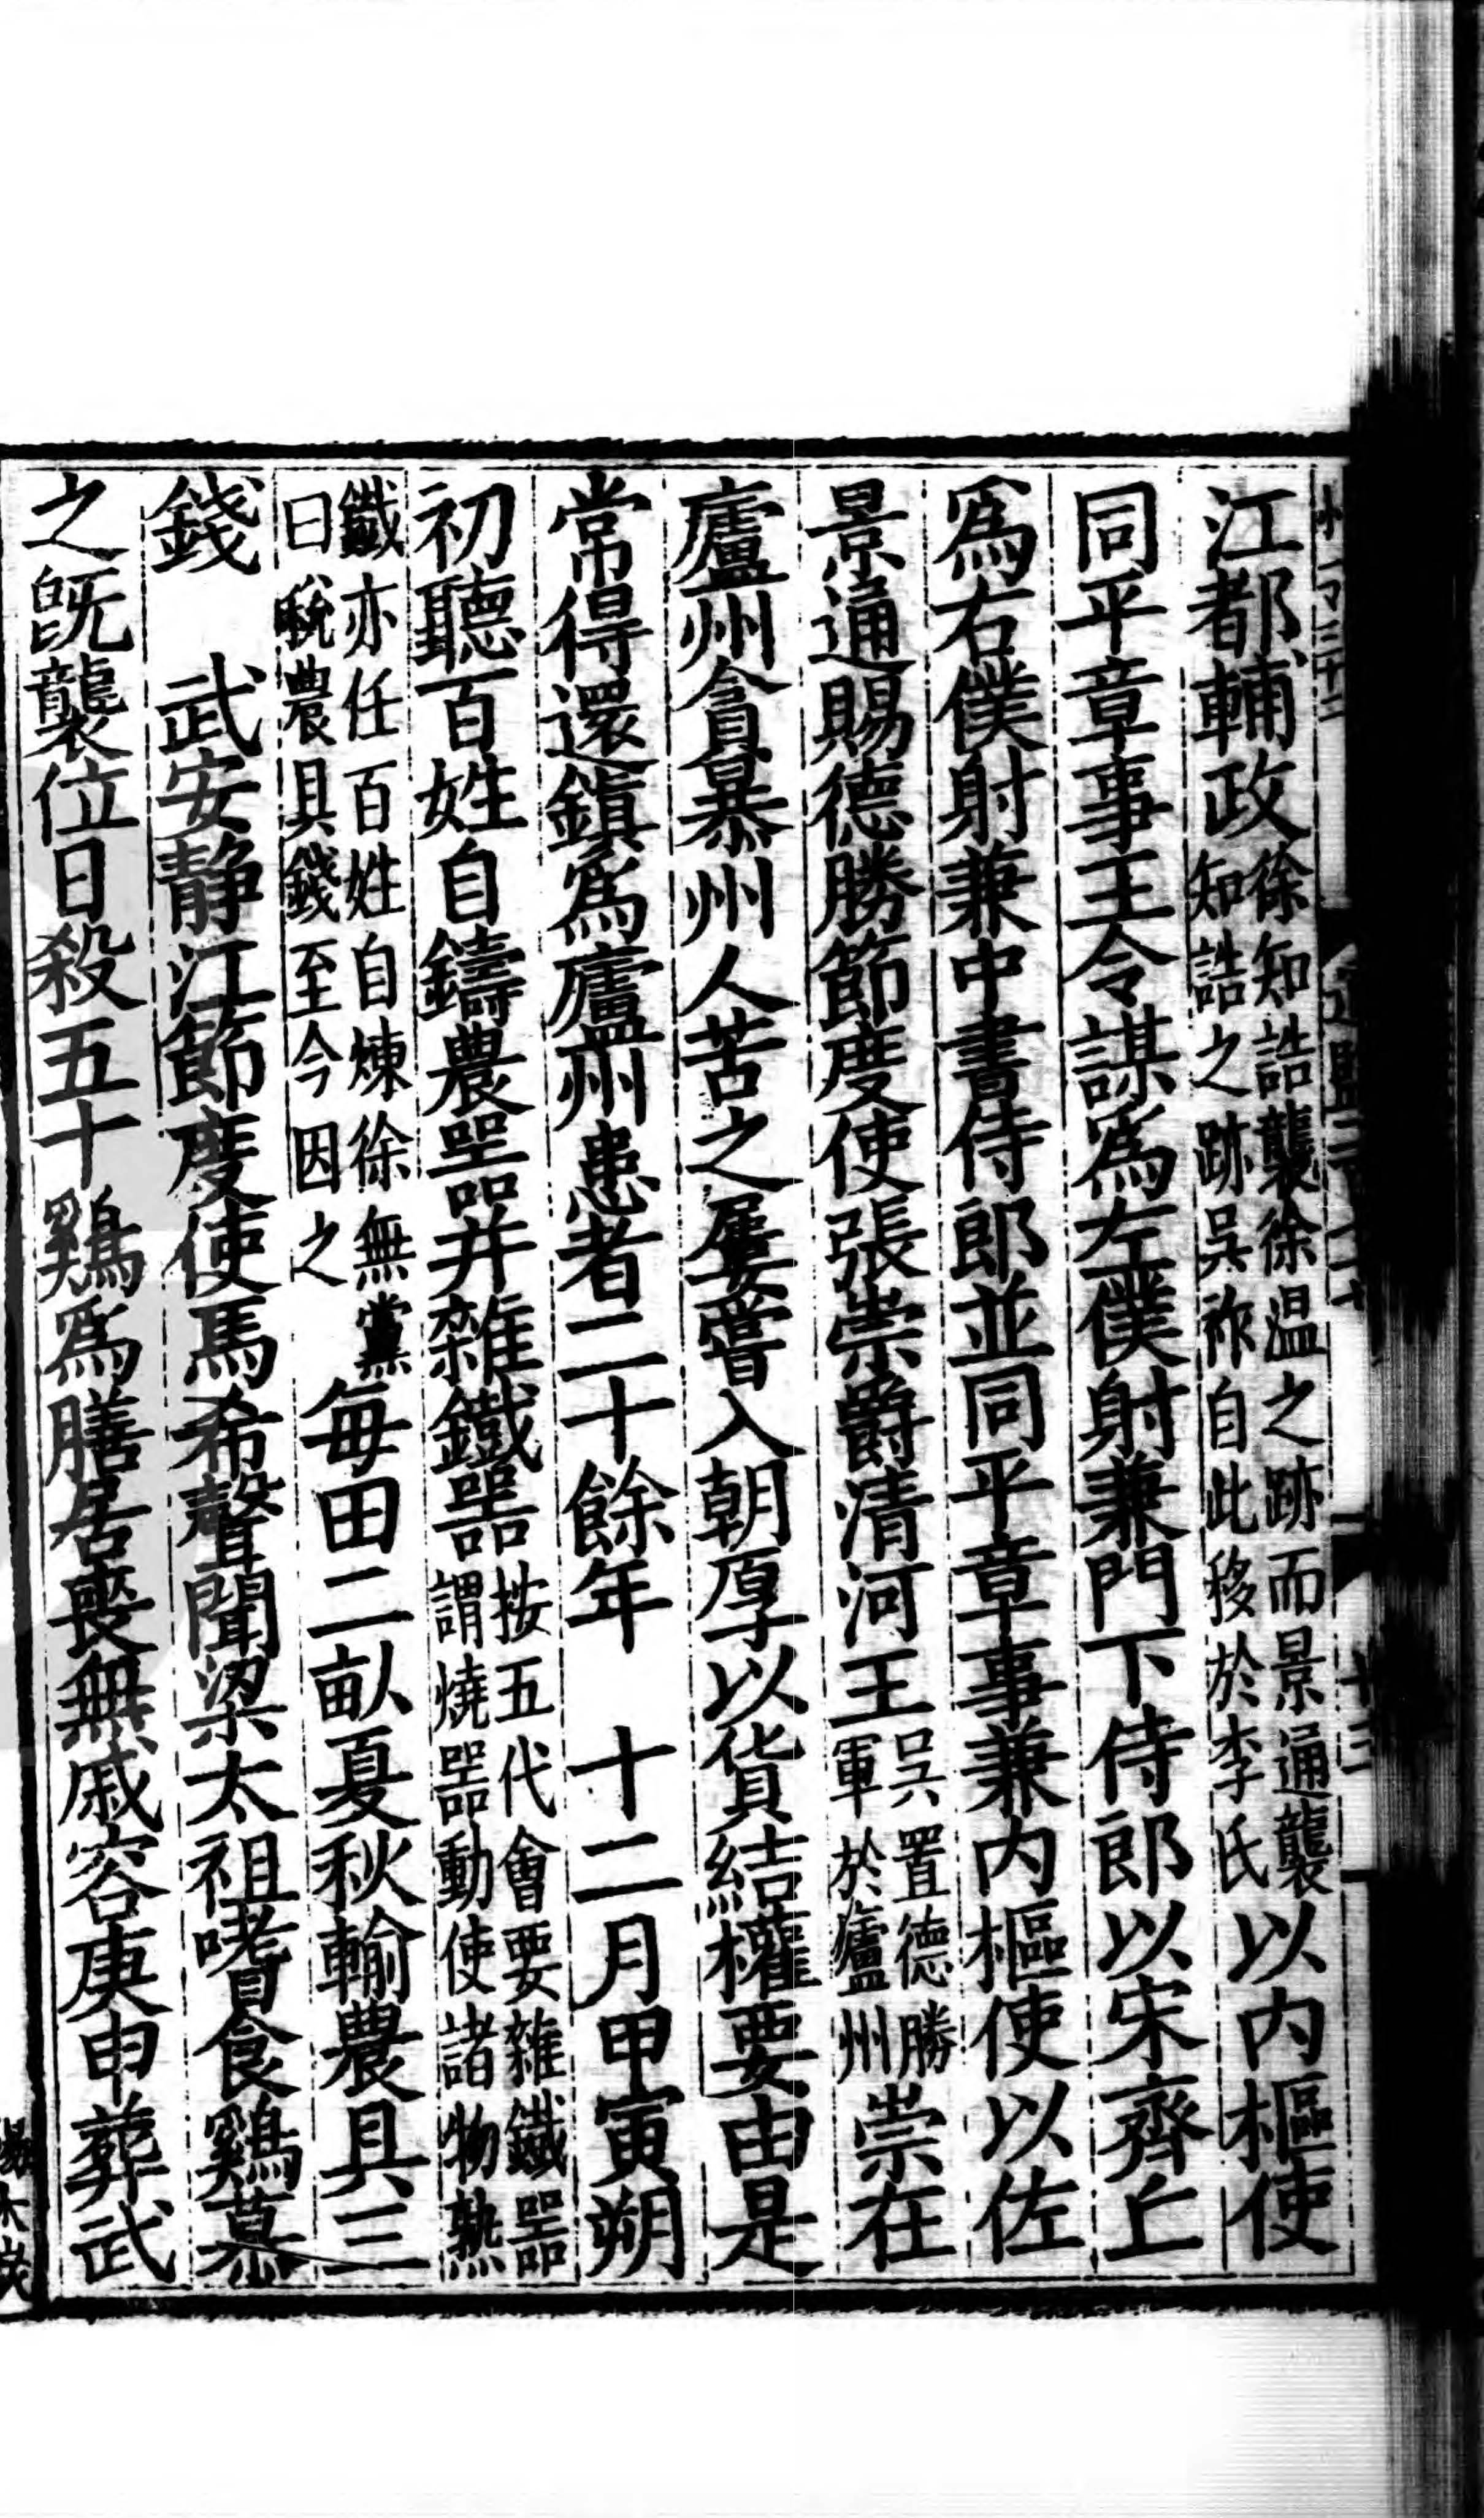 江都輔政徐知誥襲徐温之跡而景通襲知誥之跡吳祚自此移於李氏以内樞使
同平章事王令謀爲左僕射兼門下侍郎以宋齊丘
爲右僕射兼中書侍郎並同平章事兼内樞使以佐
景通賜德勝節度使張崇爵清河王吳置德勝軍於廬州崇在
廬州貪暴州人苦之屢嘗入朝厚以貨結權要由是
常得還鎮爲廬州患者二十餘年　十二月甲寅朔
初聽百姓自鑄農噐并雜鐵噐按五代會要雜鐵噐謂燒噐動使諸物熟
鐵亦任百姓自煉徐無黨曰税農具錢至今因之每田二畝夏秋輸農具三
錢　武安静江節度使馬希聲聞梁太祖嗜食鷄慕
之旣襲位日殺五十鷄爲膳居喪無戚容庚申葬武